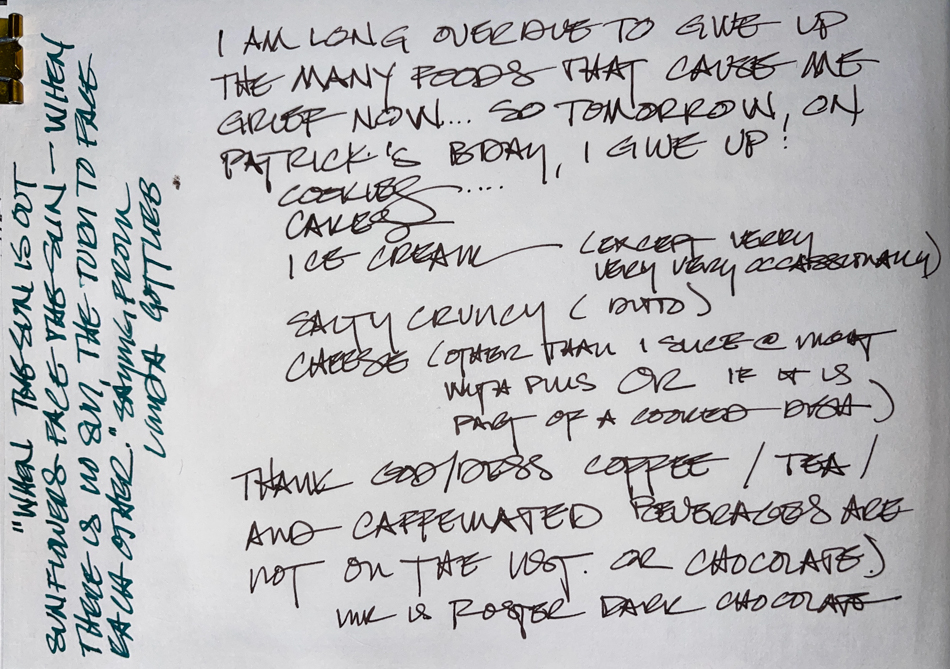 I AM LONG OVERDUE TO GIVE UP
THE MANY FOODS THAT CAUSE ME
GRIEF NOW... SO TOMORROW, ON
PATRICK'S BDAY, I GIVE UP!
COOKIES.....
CAKES
ICE CREAM (EXCEPT VERRY
VERY VERY OCCASSIONALLY)
SALTY CRUNCY (DITTO)
CHEESE (OTHER THAN 1 SLICE @ NIGHT
WITH PILLS OR IF IT IS
PART OF A COOKED DISH)
THANK GOD/DESS COFFEE / TEA /
AND CAFFEINATED BEVERAGES ARE
NOT ON THE LIST. OR CHOCOLATE.)
INK IS DARK CHOCOLATE
"WHEN THE SUN IS OUT
SUNFLOWERS FACE THE SUN - WHEN
THERE IS NO SUN, THE TURN TO FACE
EACH OTHER." SAYING FROM
LINDA GOTTLIEB